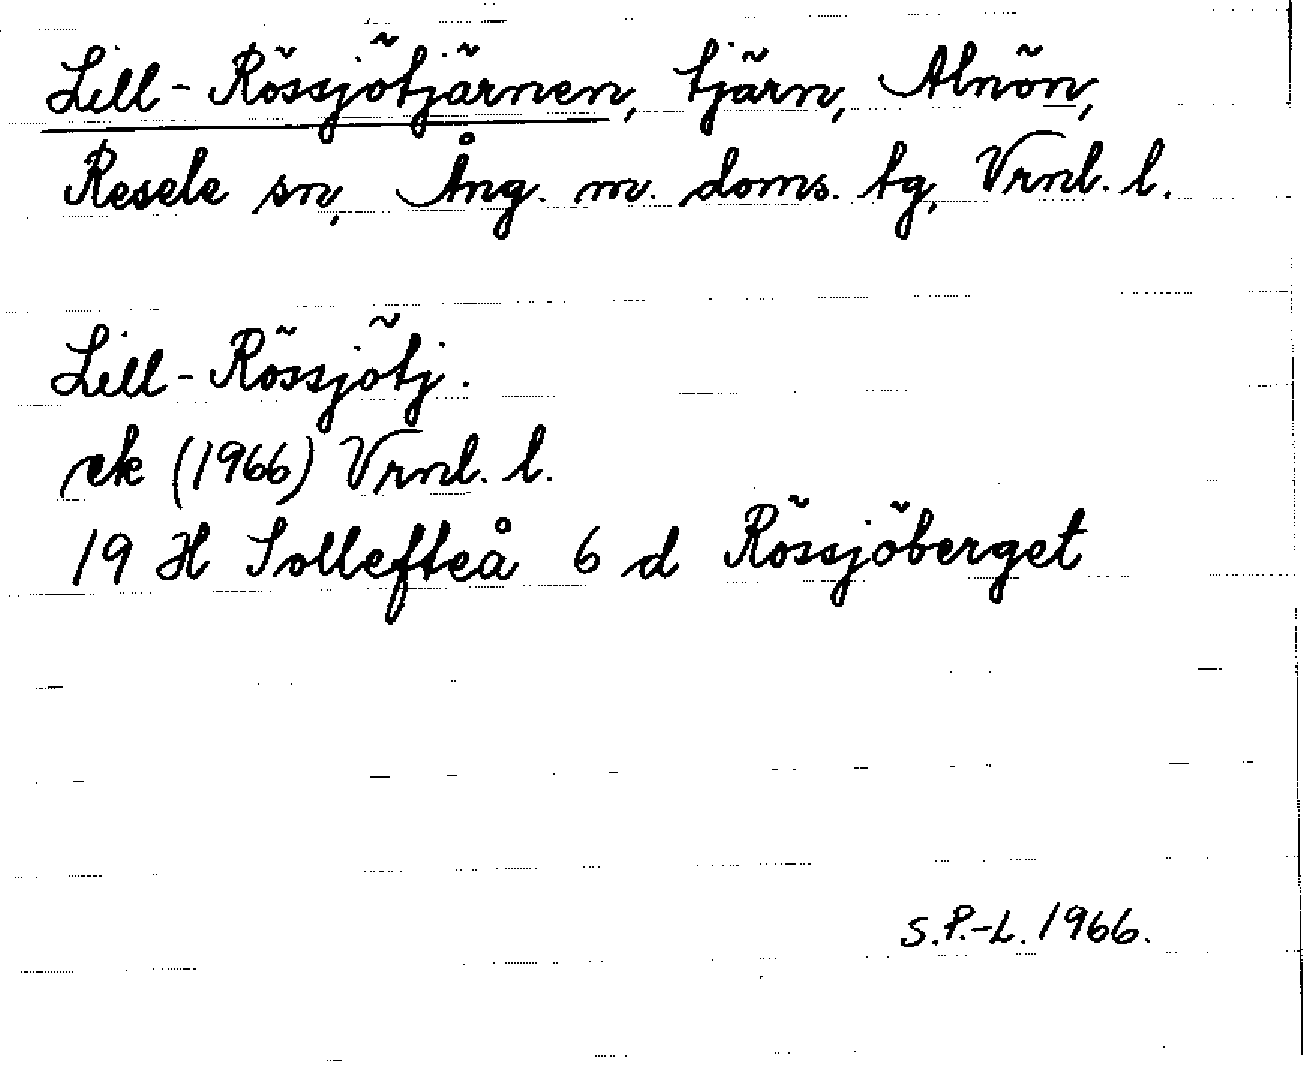 Lill-Rössjötjärnen, tjärn, Alnön,
Resele sn, Ång. m. doms. tg, Vrnl. l.
Lill-Rössjötj.
ek (1966) Vrnl. l.
19 H Sollefteå 6 d Rössjöberget
S.P.-L. 1966.